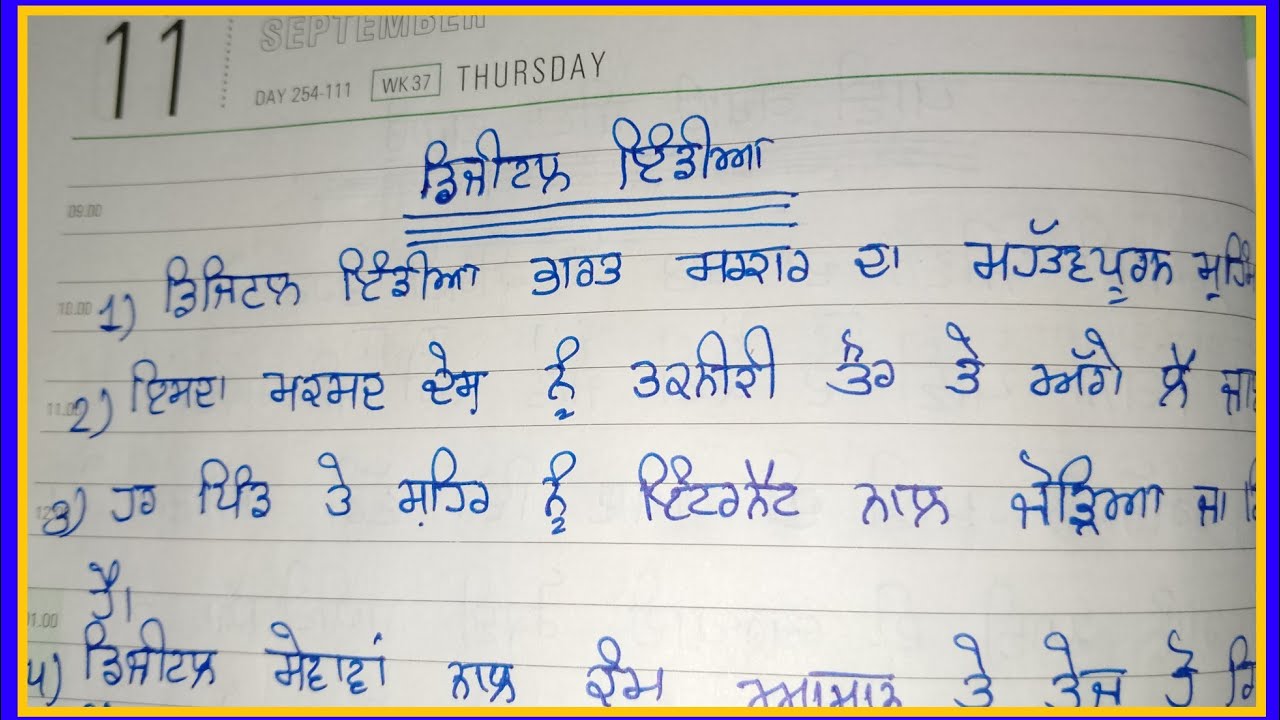 11
SEPTEMBER
DAY 254-111 WK 37 THURSDAY
ਡਿਜੀਟਲ ਇੰਡੀਆ
09.00
1) ਡਿਜਿਟਲ ਇੰਡੀਆ ਭਾਰਤ ਸਰਕਾਰ ਦਾ ਮਹੱਤਵਪੂਰਨ
10.00
2) ਇਸਦਾ ਮਕਸਦ ਦੇਸ਼ ਨੂੰ ਤਕਨੀਕੀ ਤੌਰ ਤੇ ਅੱਗੇ ਲੈ
11.00
3) ਹਰ ਪਿੰਡ ਤੇ ਸ਼ਹਿਰ ਨੂੰ ਇੰਟਰਨੈਟ ਨਾਲ ਜੋੜਿਆ ਜਾ
ਹੈ।
01.00
4) ਡਿਜੀਟਲ ਸੇਵਾਵਾਂ ਨਾਲ ਕੰਮ ਆਸਾਨ ਤੇ ਤੇਜ਼ ਹੋ